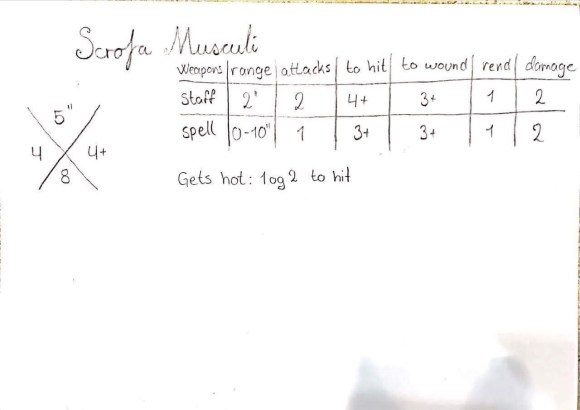 Scrofa Musculi
Weapons range attacks to hit to wound rend damage
Staff 2' 2 4+ 3+ 1 2
spell 0-10" 1 3+ 3+ 1 2
5"
4 4+
8
Gets hot: 1 og 2 to hit